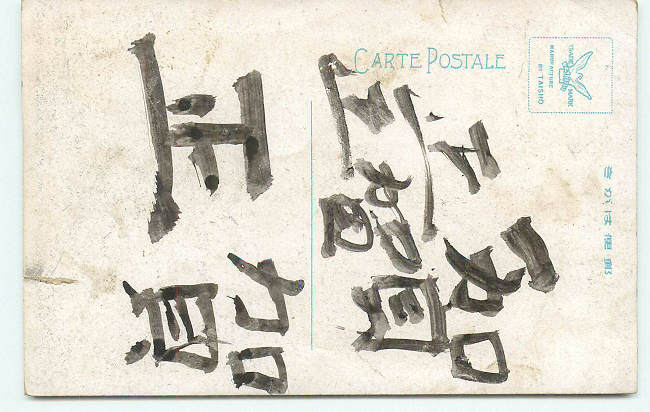 CARTE POSTALE
TRADE MARK
MANUFACTURE
BY TAISHO
きがは便郵
正賀
正賀
正賀